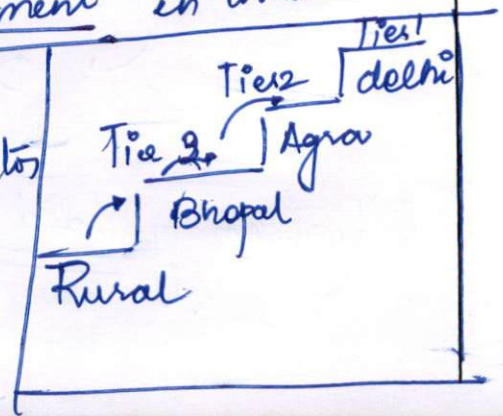 Tier 1
Tier 2
delhi
tos
Tier 3
Agra
Bhopal
Rural